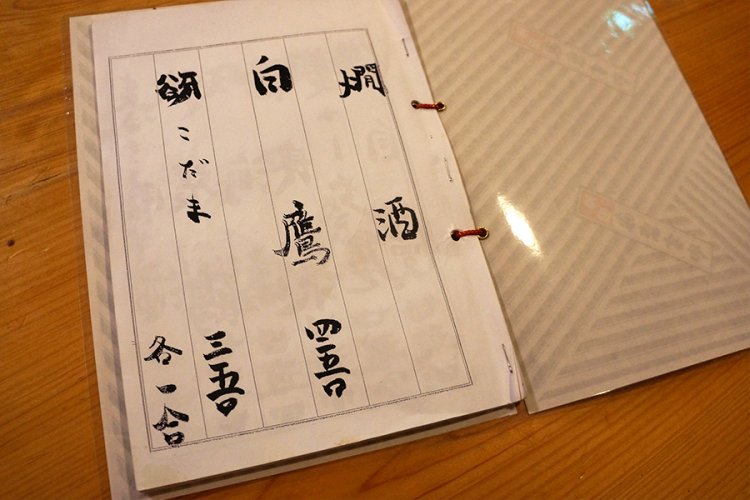 燗酒
白鷹 四五〇
谺 こだま 三五〇
各一合